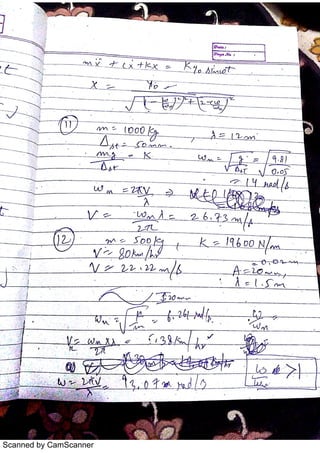 Date :
Page No. :
mẍ + cẋ + kx = Ky₀ sinωt
X = y₀
√(1 - (ω/ωn)²)² + (2ξω/ωn)²
11
m = 1000 kg , λ = 12 m
Δst = 50 mm.
mg = K
Δst
ωn = √g/Δst = √9.81/0.05
= 14 rad/s
ωn = 2πV/λ ⇒
V = ωnλ/2π = 26.73 m/s
12
m = 500 kg , K = 19600 N/m
V = 80 km/hr
= 0.02 m
V = 22.22 m/s A = 20 mm,
λ = 1.5 m
20mm
ωn = √K/m = 6.261 rad/s. ω/ωn
V = ωnλ/2π = 5.38 Km/hr
ω = 2πV/λ 93.07 rad/s
ω/ωn >1
Scanned by CamScanner